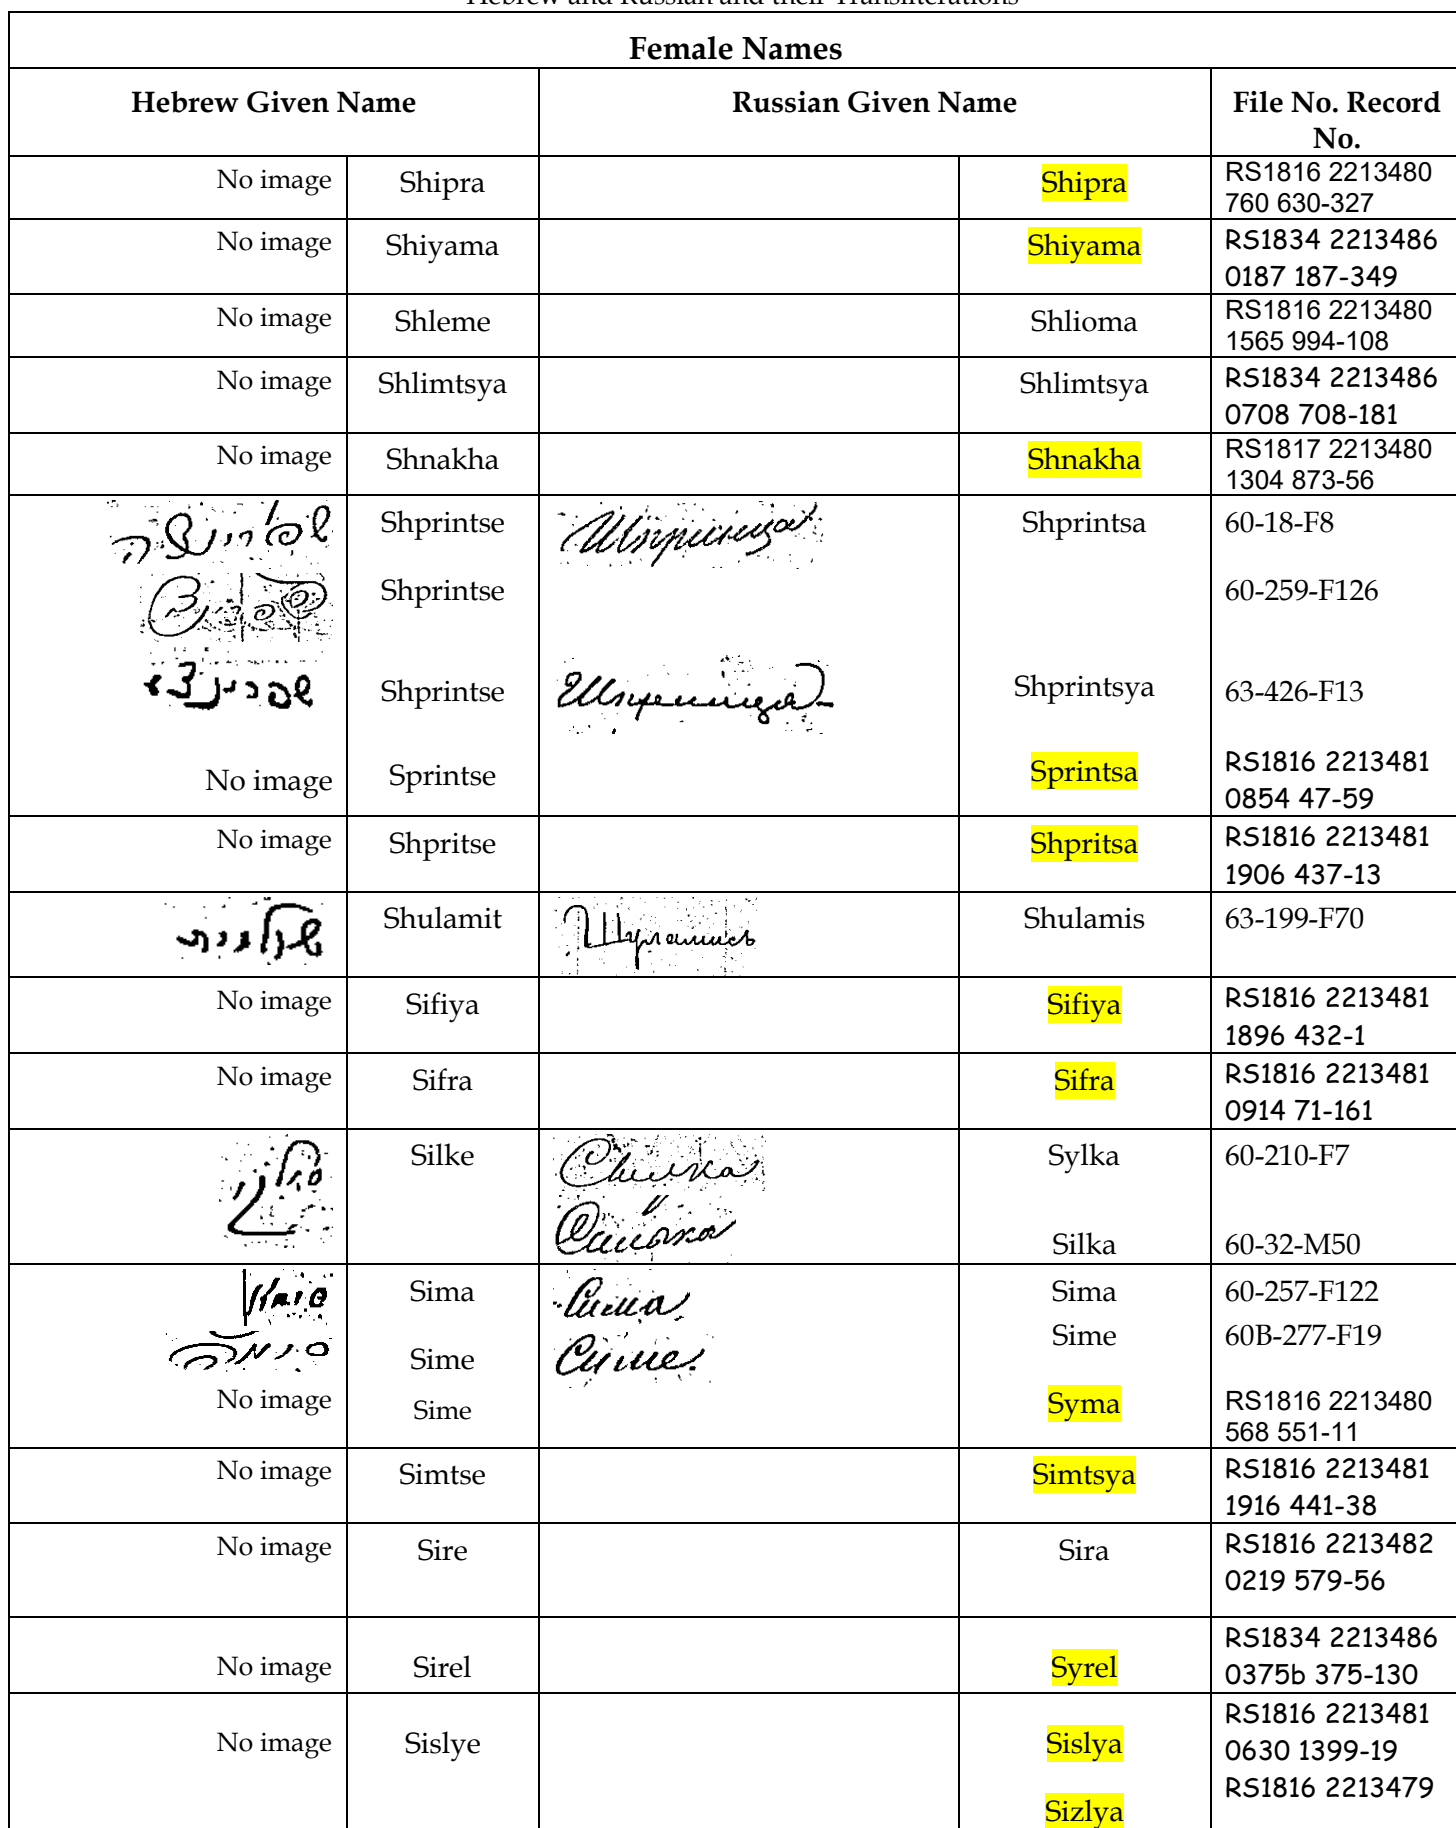 Hebrew and Russian and their Transliterations
Female Names
Hebrew Given Name Russian Given Name File No. Record No.
No image Shipra Shipra RS1816 2213480
760 630-327
No image Shiyama Shiyama RS1834 2213486
0187 187-349
No image Shleme Shlioma RS1816 2213480
1565 994-108
No image Shlimtsya Shlimtsya RS1834 2213486
0708 708-181
No image Shnakha Shnakha RS1817 2213480
1304 873-56
שפרינצה Shprintse Шпринца Shprintsa 60-18-F8
Shprintse 60-259-F126
שפרינצא Shprintse Шпринца Shprintsya 63-426-F13
No image Sprintse Sprintsa RS1816 2213481
0854 47-59
No image Shpritse Shpritsa RS1816 2213481
1906 437-13
שולמית Shulamit Шуламись Shulamis 63-199-F70
No image Sifiya Sifiya RS1816 2213481
1896 432-1
No image Sifra Sifra RS1816 2213481
0914 71-161
Silke Сылка Sylka 60-210-F7
Силька Silka 60-32-M50
סימא Sima Сима Sima 60-257-F122
סימה Sime Симе. Sime 60B-277-F19
No image Sime Syma RS1816 2213480
568 551-11
No image Simtse Simtsya RS1816 2213481
1916 441-38
No image Sire Sira RS1816 2213482
0219 579-56
No image Sirel Syrel RS1834 2213486
0375b 375-130
No image Sislye Sislya RS1816 2213481
0630 1399-19
Sizlya RS1816 2213479